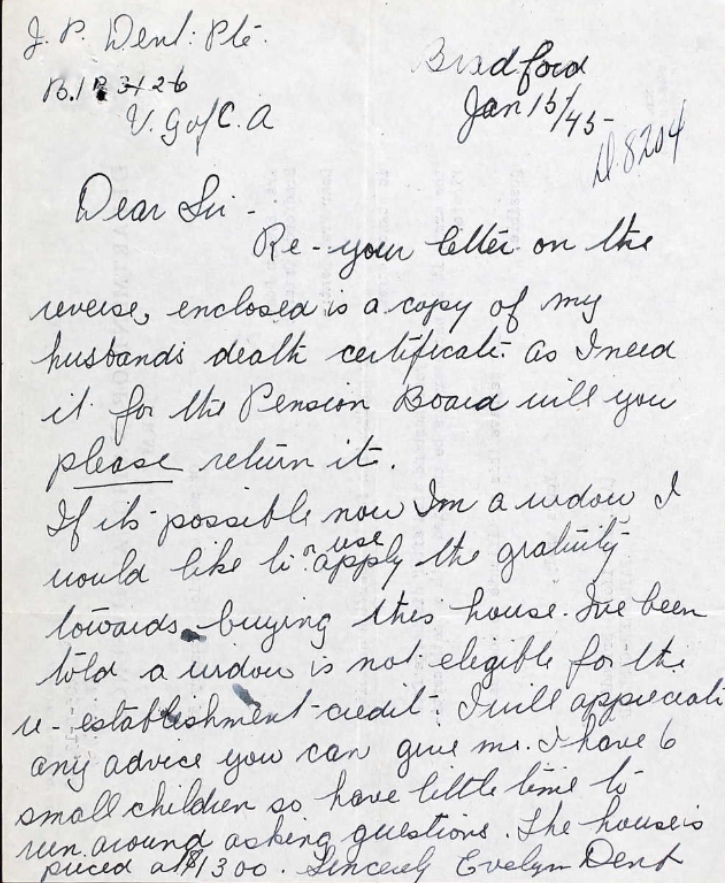 J. P. Dent: Pte.
B.1 3126
V. G of C. A
Bradford
Jan 15/45-
D.8204
Dear Sir -
Re - your letter on the
reverse, enclosed is a copy of my
husbands death certificate. As I need
it for the Pension Board will you
please return it.
If its possible now Im a widow I
would like to "use apply the gratuity
towards buying this house. I've been
told a widow is not elegible for the
re-establishment credit. I will appreciate
any advice you can give me. I have 6
small children so have little time to
run around asking questions. The house is
priced at $1300. Sincerely Evelyn Dent